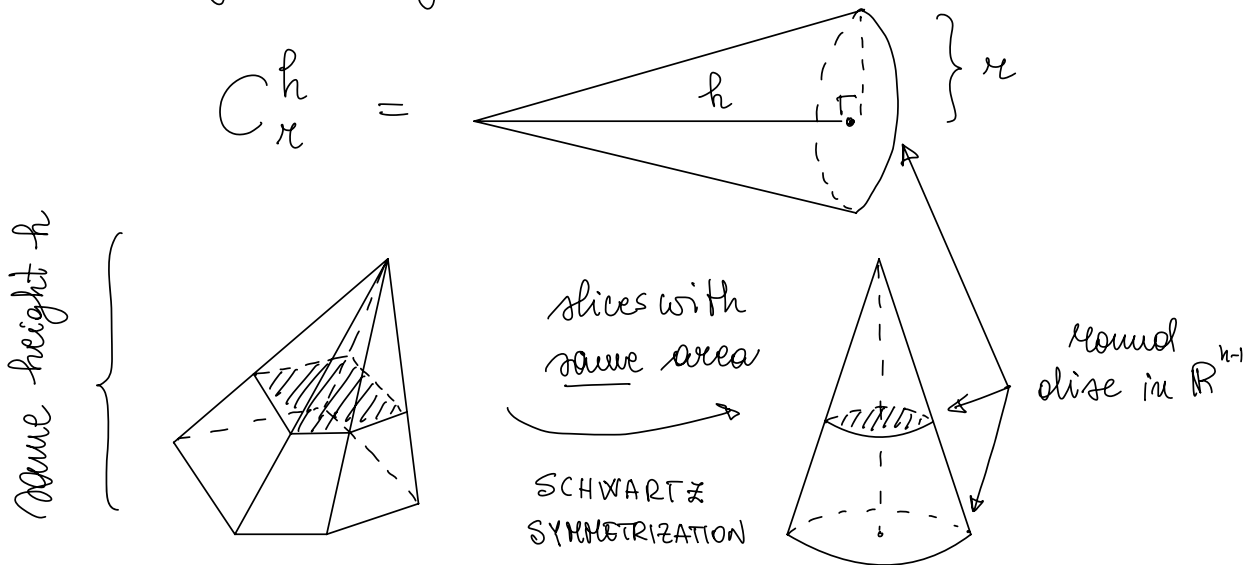 C_r^h = h } r
same height h
slices with
same area
SCHWARTZ
SYMMETRIZATION
round
disc in ℝ^{n-1}